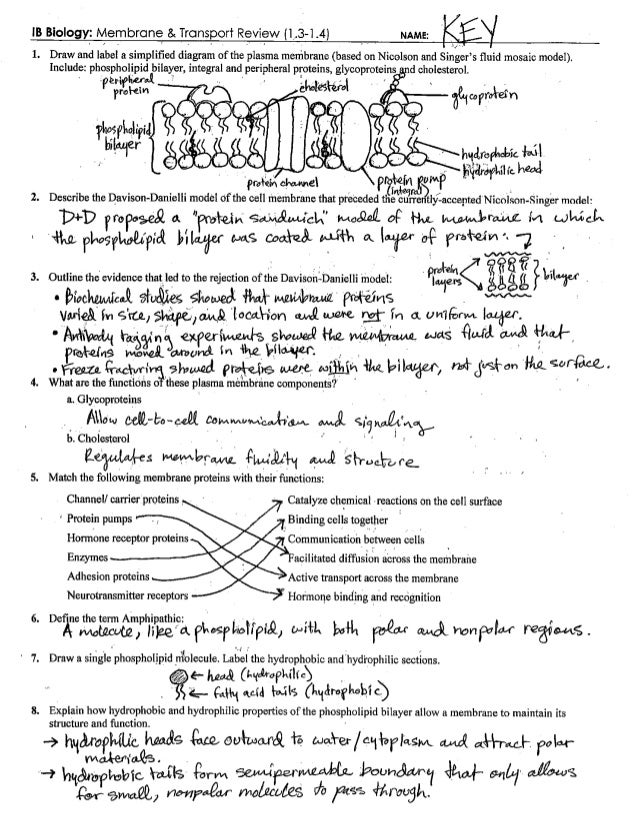 IB Biology: Membrane & Transport Review (1.3-1.4) NAME: KEY
1. Draw and label a simplified diagram of the plasma membrane (based on Nicolson and Singer's fluid mosaic model).
Include: phospholipid bilayer, integral and peripheral proteins, glycoproteins and cholesterol.
peripheral protein
cholesterol
glycoprotein
phospholipid bilayer
hydrophobic tail
hydrophilic head
protein channel
protein pump
(integral)
2. Describe the Davison-Danielli model of the cell membrane that preceded the currently-accepted Nicolson-Singer model:
D+D proposed a "protein sandwich" model of the membrane in which
the phospholipid bilayer was coated with a layer of protein.
protein layers
bilayer
3. Outline the evidence that led to the rejection of the Davison-Danielli model:
• Biochemical studies showed that membrane proteins
varied in size, shape, and location and were not in a uniform layer.
• Antibody tagging experiments showed the membrane was fluid and that
proteins moved around in the bilayer.
• Freeze fracturing showed proteins were within the bilayer, not just on the surface.
4. What are the functions of these plasma membrane components?
a. Glycoproteins
Allow cell-to-cell communication and signaling
b. Cholesterol
Regulates membrane fluidity and structure
5. Match the following membrane proteins with their functions:
Channel/ carrier proteins Catalyze chemical reactions on the cell surface
Protein pumps Binding cells together
Hormone receptor proteins Communication between cells
Enzymes Facilitated diffusion across the membrane
Adhesion proteins Active transport across the membrane
Neurotransmitter receptors Hormone binding and recognition
6. Define the term Amphipathic:
A molecule, like a phospholipid, with both polar and nonpolar regions.
7. Draw a single phospholipid molecule. Label the hydrophobic and hydrophilic sections.
← head (hydrophilic)
← fatty acid tails (hydrophobic)
8. Explain how hydrophobic and hydrophilic properties of the phospholipid bilayer allow a membrane to maintain its
structure and function.
→ hydrophilic heads face outward to water/cytoplasm and attract polar
materials.
→ hydrophobic tails form semipermeable boundary that only allows
for small, nonpolar molecules to pass through.